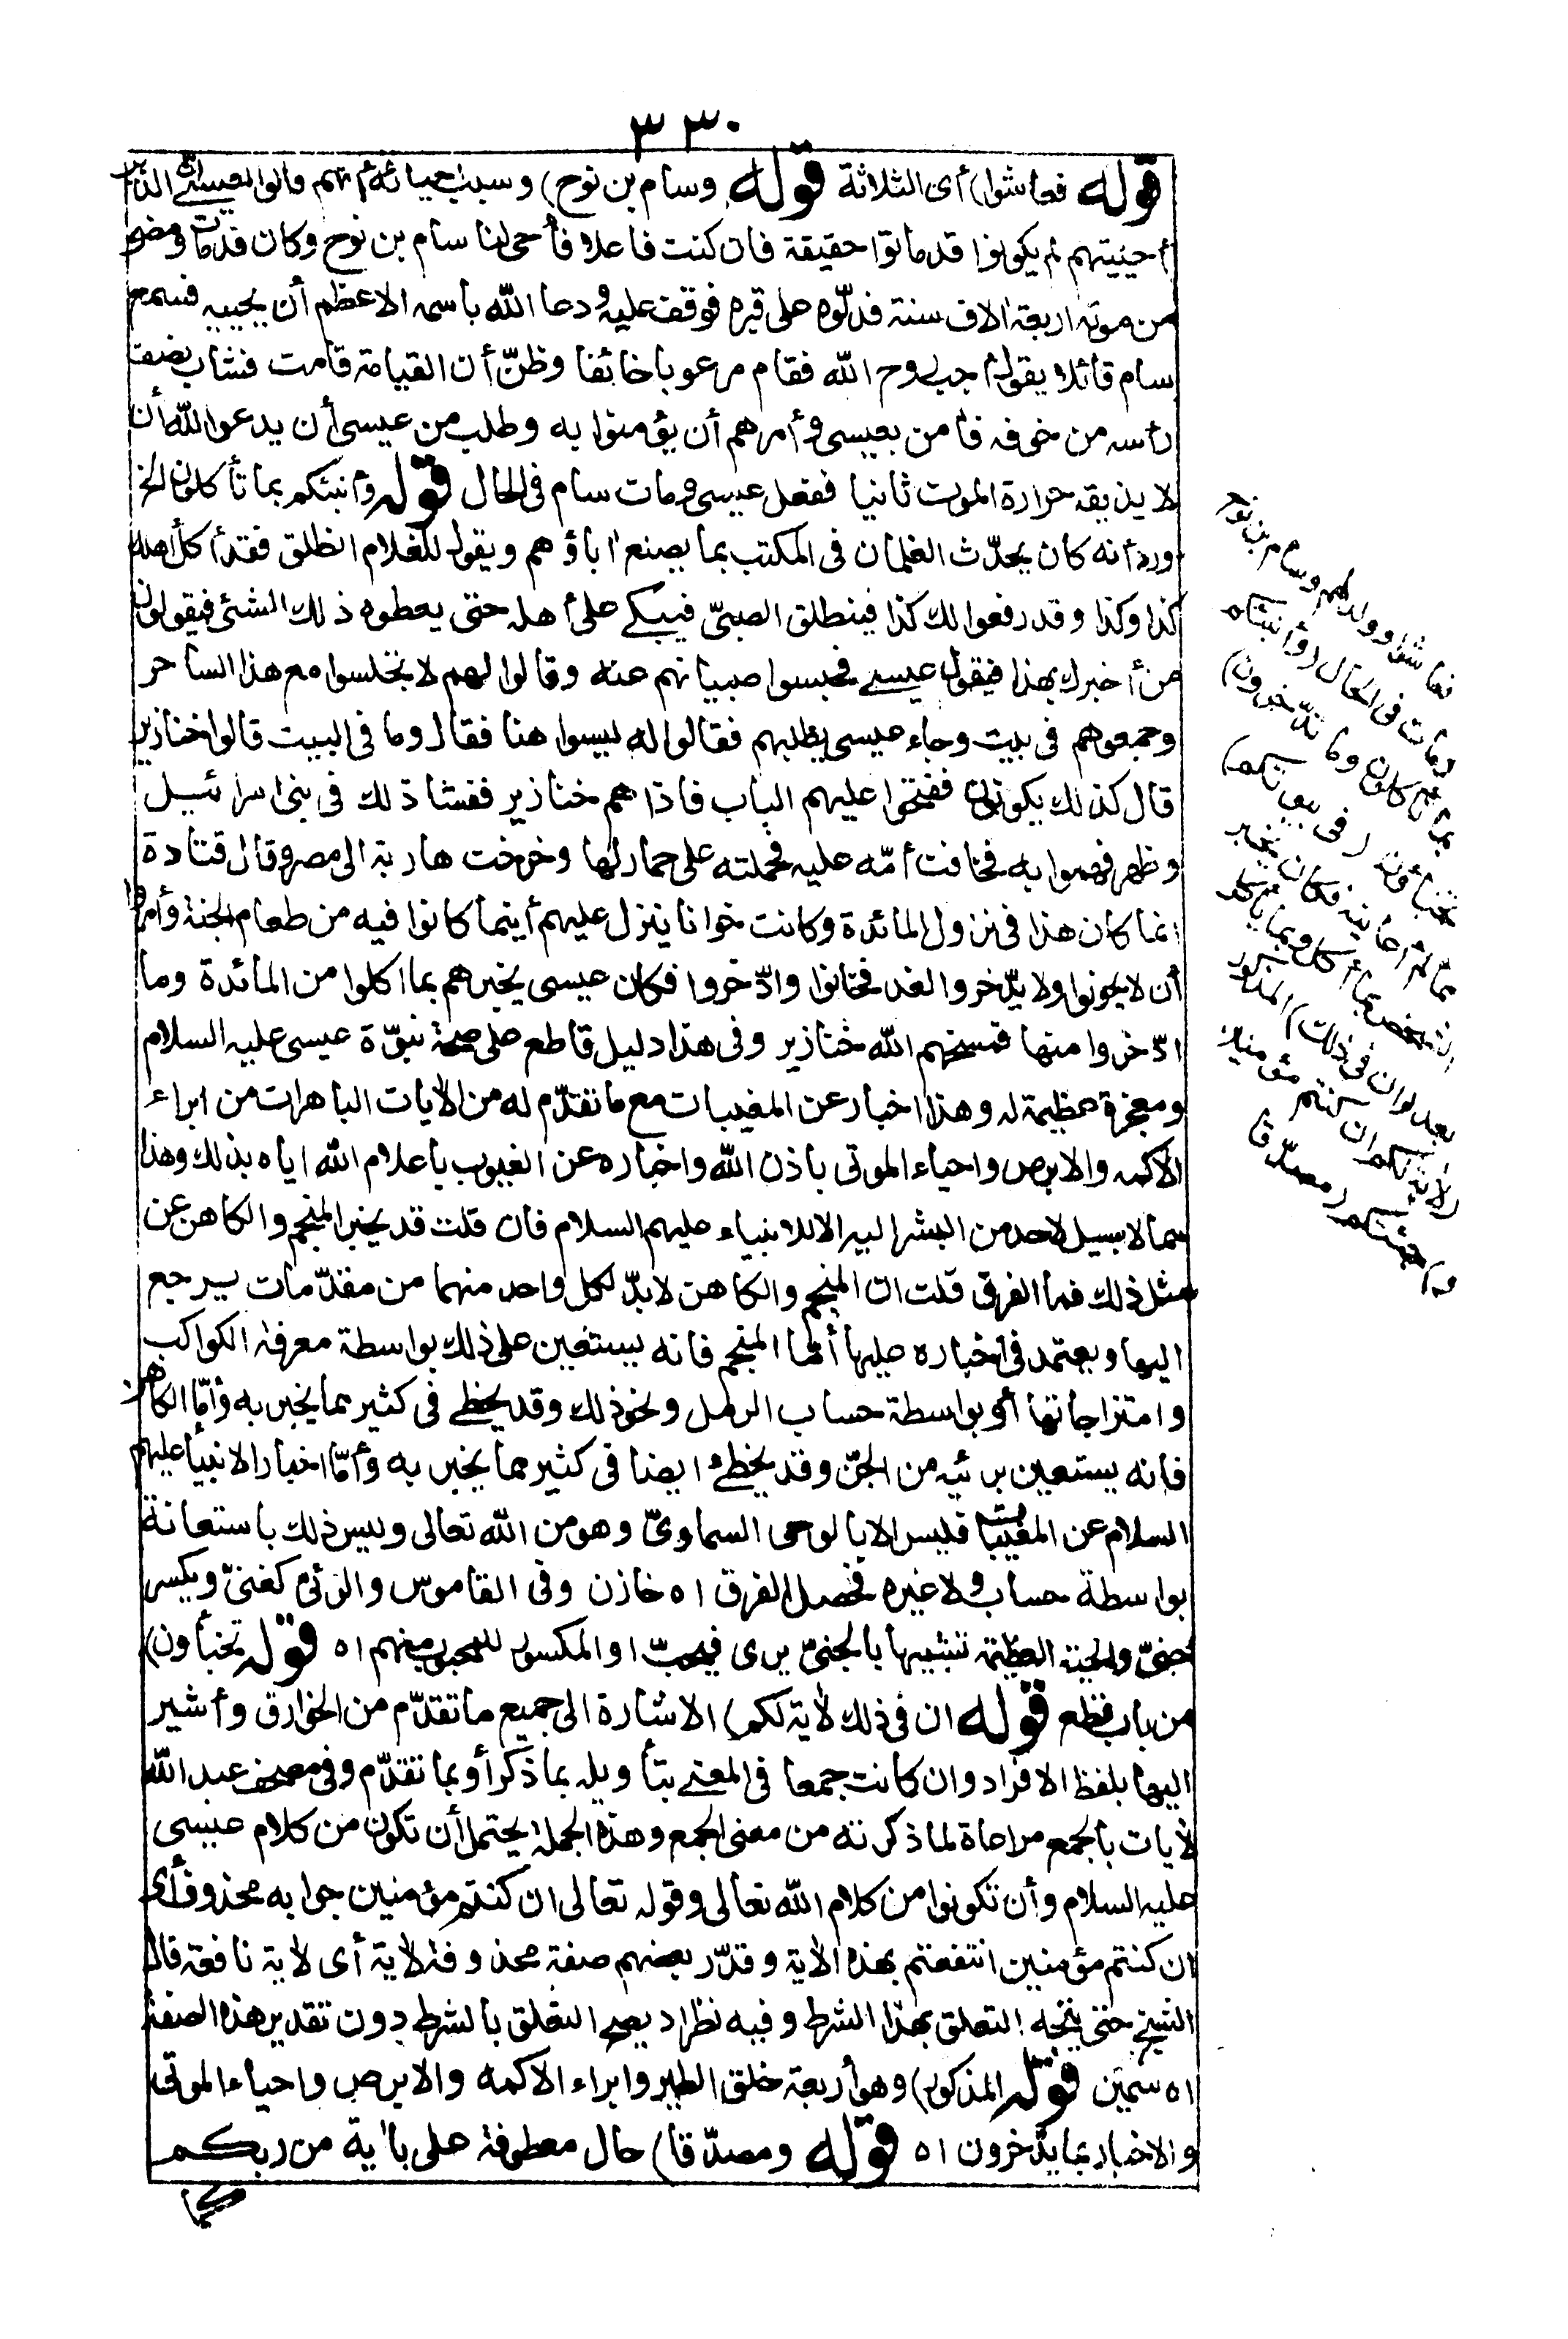 ٣٣٠
قوله فعاشوا) أى الثلاثة قوله وسام بن نوح) وسبب حياته أنهم قالوا لعيسى ان الذين
أحييتهم لم يكونوا قد ماتوا حقيقة فان كنت فاعلا فأحى لنا سام بن نوح وكان قد مات ومضى
من موته اربعة الاف سنة فدلّوه على قبره فوقف عليه ودعا الله باسمه الاعظم أن يحييه فسمع
سام قائلا يقول أجب روح الله فقام مرعوبا خائفا وظنّ أن القيامة قامت فشاب نصف
رأسه من خوفه فامن بعيسى وأمرهم أن يؤمنوا به وطلب من عيسى أن يدعو الله أن
لا يذيقه حرارة الموت ثانيا ففعل عيسى ومات سام فى الحال قوله وأنبئكم بما تأكلون الخ
ورد أنه كان يحدّث الغلمان فى المكتب بما يصنع اباؤهم ويقول للغلام انطلق فقد أكل أهلك
كذا وكذا وقد رفعوا لك كذا فينطلق الصبىّ فيبكى على أهله حتى يعطوه ذلك الشئ فيقولون
من أخبرك بهذا فيقول عيسى فحبسوا صبيانهم عنه وقالوا لهم لا تجلسوا مع هذا الساحر
وجمعوهم فى بيت وجاء عيسى يطلبهم فقالوا له ليسوا هنا فقال وما فى البيت قالوا خنازير
قال كذلك يكونون ففتحوا عليهم الباب فاذا هم خنازير ففشا ذلك فى بنى اسرائيل
وظهر فهموا به فخافت أمّه عليه فحملته على حمار لها وخرجت هاربة الى مصر وقال قتادة
انما كان هذا فى نزول المائدة وكانت خوانا ينزل عليهم أينما كانوا فيه من طعام الجنة وأمروا
أن لا يخونوا ولا يدّخروا لغد فخانوا وادّخروا فكان عيسى يخبرهم بما اكلوا من المائدة وما
ادّخروا منها فمسخهم الله خنازير وفى هذا دليل قاطع على صحة نبوّة عيسى عليه السلام
ومعجزة عظيمة له وهذا اخبار عن المغيبات مع ما تقدّم له من الأيات الباهرات من ابراء
الاكمه والابرص واحياء الموتى باذن الله واخباره عن الغيوب باعلام الله اياه بذلك وهذا
مما لا سبيل لاحد من البشر اليه الا للانبياء عليهم السلام فان قلت قد يخبر المنجم والكاهن عن
مثل ذلك فما الفرق قلت ان المنجم والكاهن لا بدّ لكل واحد منهما من مقدّمات يرجع
اليها ويعتمد فى اخباره عليها أمّا المنجم فانه يستعين على ذلك بواسطة معرفة الكواكب
وامتزاجاتها أو بواسطة حساب الرمل ونحو ذلك وقد يخطئ فى كثير مما يخبر به وأمّا الكاهن
فانه يستعين برئيه من الجنّ وقد يخطئ ايضا فى كثير مما يخبر به وأمّا اخبار الانبياء عليهم
السلام عن المغيبات فليس الا بالوحى السماوىّ وهو من الله تعالى وليس ذلك باستعانة
بواسطة حساب ولا غيره فحصل الفرق اه خازن وفى القاموس والرئىّ كغنىّ ويكسر
جنىّ والحية العظيمة تشبيها بالجنىّ يرى فيحبّ او المكسور للمحبوب منهم اه قوله تخبأون)
من باب قطع قوله ان فى ذلك لأية لكم) الاشارة الى جميع ما تقدّم من الخوارق وأشير
اليها بلفظ الافراد وان كانت جمعا فى المعنى بتأويله بما ذكر أو بما تقدّم وفى مصحف عبد الله
لأيات بالجمع مراعاة لما ذكرته من معنى الجمع وهذه الجملة يحتمل أن تكون من كلام عيسى
عليه السلام وأن تكونوا من كلام الله تعالى وقوله تعالى ان كنتم مؤمنين جوابه محذوف أى
ان كنتم مؤمنين انتفعتم بهذه الأية وقدّر بعضهم صفة محذوفة لأية أى لأية نافعة قال
الشيخ حتى يتجه التعلق بهذا الشرط وفيه نظر اذ يصح التعلق بالشرط دون تقدير هذه الصفة
اه سمين قوله المذكور) وهو أربعة خلق الطير وابراء الاكمه والابرص واحياء الموتى
والاخبار بما يدّخرون اه قوله ومصدّقا) حال معطوفة على باية من ربكم
فعاشوا وولد لهم وسام بن نوح
ومات فى الحال (وأنبئكم
بما تأكلون وما تدّخرون)
تخبأون (فى بيوتكم)
مما لم أعاينه فكان يخبر
الشخص بما أكل وبما يأكل
بعد (ان فى ذلك) المذكور
(لأية لكم ان كنتم مؤمنين
و) جئتكم (مصدّقا